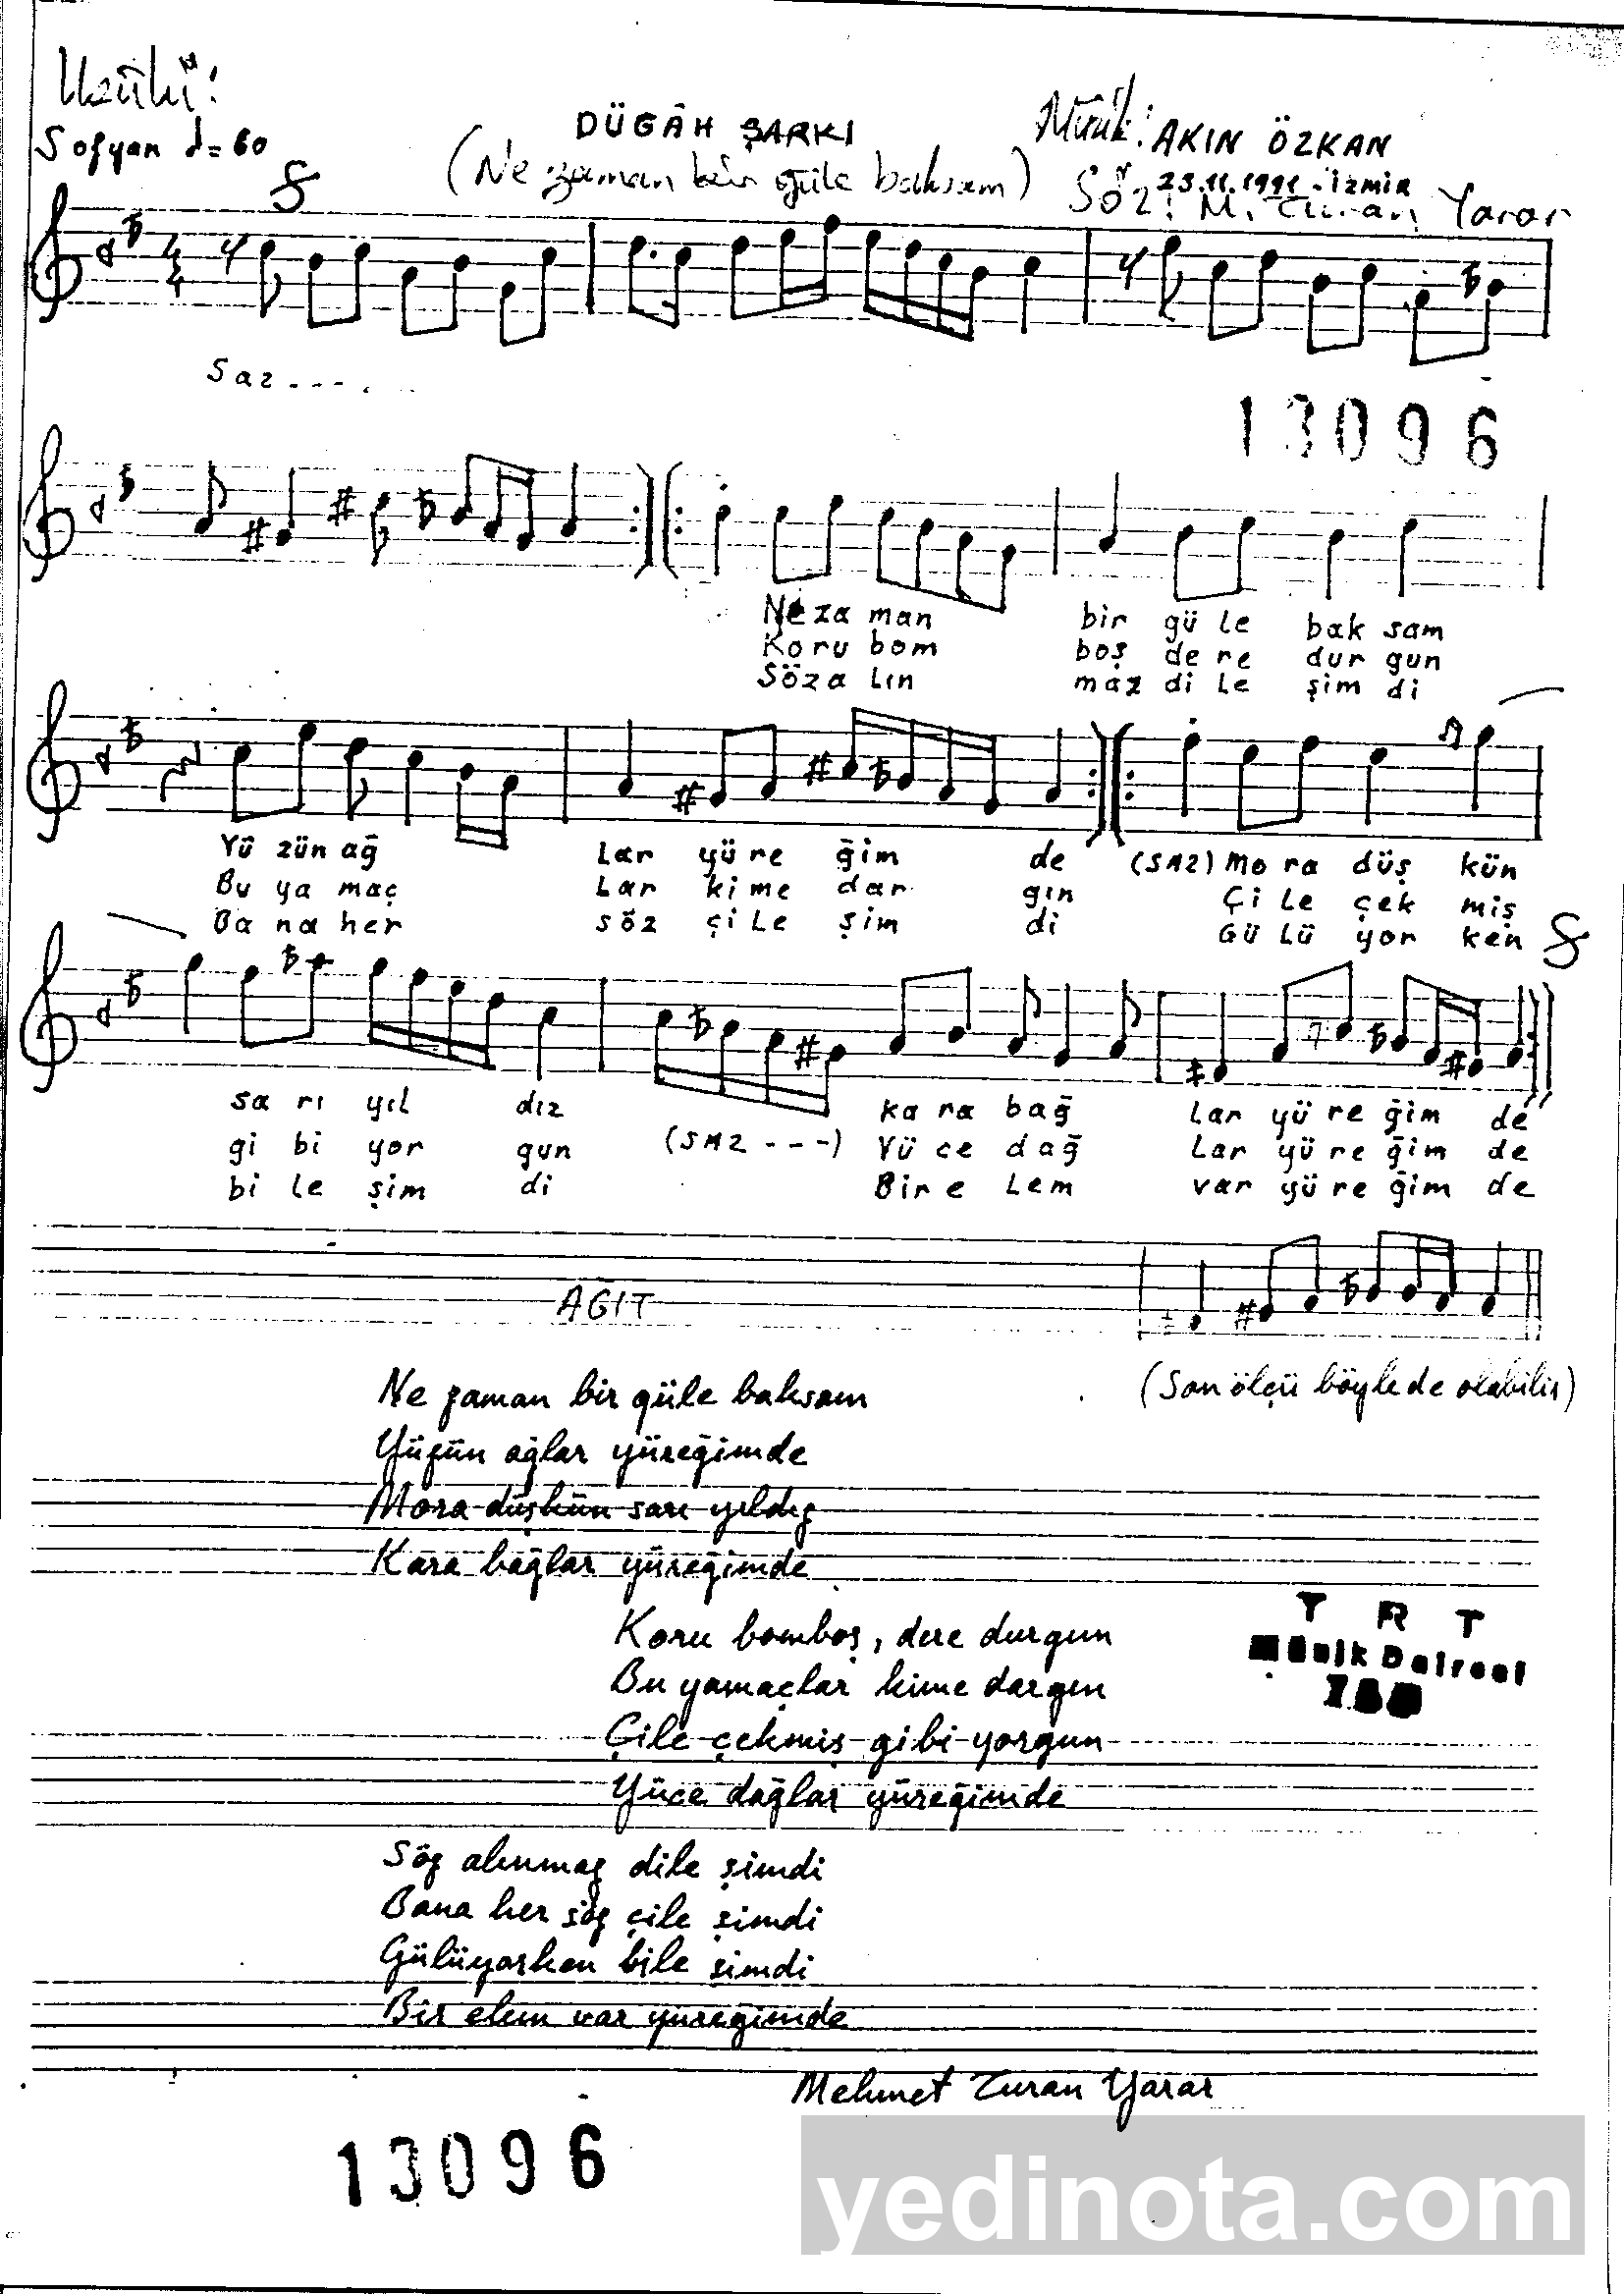 Usûlü:
DÜGÂH ŞARKI
Müzik: AKIN ÖZKAN
Sofyan ♩=60
(Ne zaman bir güle baksam)
23.11.1991 - İZMİR
Söz: M. Turan Yarar
4
4
Saz - - - .
13096
Ne za man bir gü le bak sam
Ko ru bom boş de re dur gun
Söz a lın maz di le şim di
Yü zün ağ lar yü re ğim de (SAZ) Mo ra düş kün
Bu ya maç lar ki me dar gın Çi le çek miş
Ba na her söz çi le şim di Gü lü yor ken
sa rı yıl dız ka ra bağ lar yü re ğim de
gi bi yor gun (SAZ - - -) Yü ce dağ lar yü re ğim de
bi le şim di Bir e lem var yü re ğim de
AĞIT
(Son ölçü böyle de olabilir)
Ne zaman bir güle baksam
Yüzün ağlar yüreğimde
Mora düşkün sarı yıldız
Kara bağlar yüreğimde
Koru bomboş, dere durgun
Bu yamaçlar kime dargın
Çile çekmiş gibi yorgun
Yüce dağlar yüreğimde
Söz alınmaz dile şimdi
Bana her söz çile şimdi
Gülüyorken bile şimdi
Bir elem var yüreğimde
Mehmet Turan Yarar
T R T
Müzik Dairesi
13096
yedinota.com